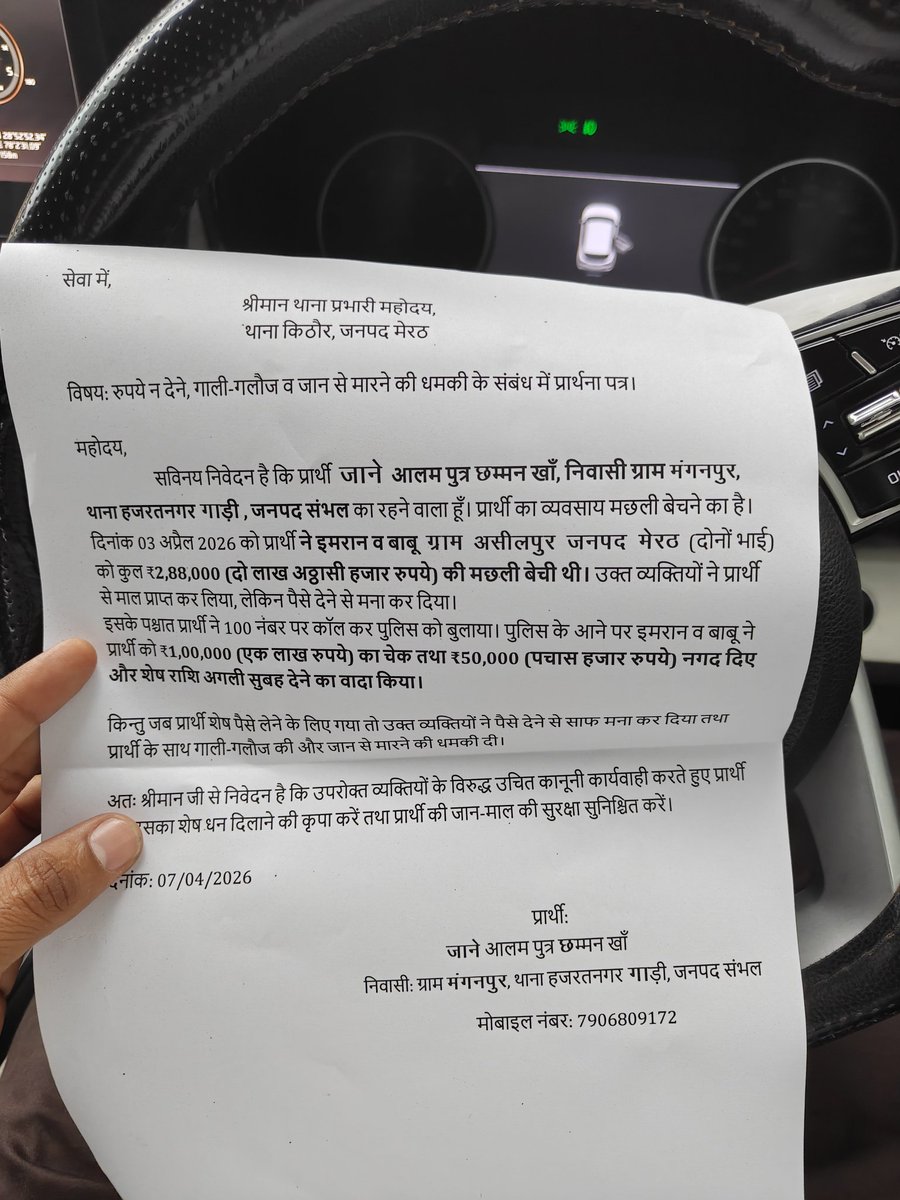 सेवा में,
श्रीमान थाना प्रभारी महोदय,
थाना किठौर, जनपद मेरठ
विषय: रुपये न देने, गाली-गलौज व जान से मारने की धमकी के संबंध में प्रार्थना पत्र।
महोदय,
सविनय निवेदन है कि प्रार्थी जाने आलम पुत्र छम्मन खाँ, निवासी ग्राम मंगनपुर,
थाना हजरतनगर गाड़ी , जनपद संभल का रहने वाला हूँ। प्रार्थी का व्यवसाय मछली बेचने का है।
दिनांक 03 अप्रैल 2026 को प्रार्थी ने इमरान व बाबू ग्राम असीलपुर जनपद मेरठ (दोनों भाई)
को कुल ₹2,88,000 (दो लाख अठ्ठासी हजार रुपये) की मछली बेची थी। उक्त व्यक्तियों ने प्रार्थी
से माल प्राप्त कर लिया, लेकिन पैसे देने से मना कर दिया।
इसके पश्चात प्रार्थी ने 100 नंबर पर कॉल कर पुलिस को बुलाया। पुलिस के आने पर इमरान व बाबू ने
प्रार्थी को ₹1,00,000 (एक लाख रुपये) का चेक तथा ₹50,000 (पचास हजार रुपये) नगद दिए
और शेष राशि अगली सुबह देने का वादा किया।
किन्तु जब प्रार्थी शेष पैसे लेने के लिए गया तो उक्त व्यक्तियों ने पैसे देने से साफ मना कर दिया तथा
प्रार्थी के साथ गाली-गलौज की और जान से मारने की धमकी दी।
अतः श्रीमान जी से निवेदन है कि उपरोक्त व्यक्तियों के विरुद्ध उचित कानूनी कार्यवाही करते हुए प्रार्थी
शेष धन दिलाने की कृपा करें तथा प्रार्थी की जान-माल की सुरक्षा सुनिश्चित करें।
07/04/2026
प्रार्थी:
जाने आलम पुत्र छम्मन खाँ
निवासी: ग्राम मंगनपुर, थाना हजरतनगर गाड़ी, जनपद संभल
मोबाइल नंबर: 7906809172